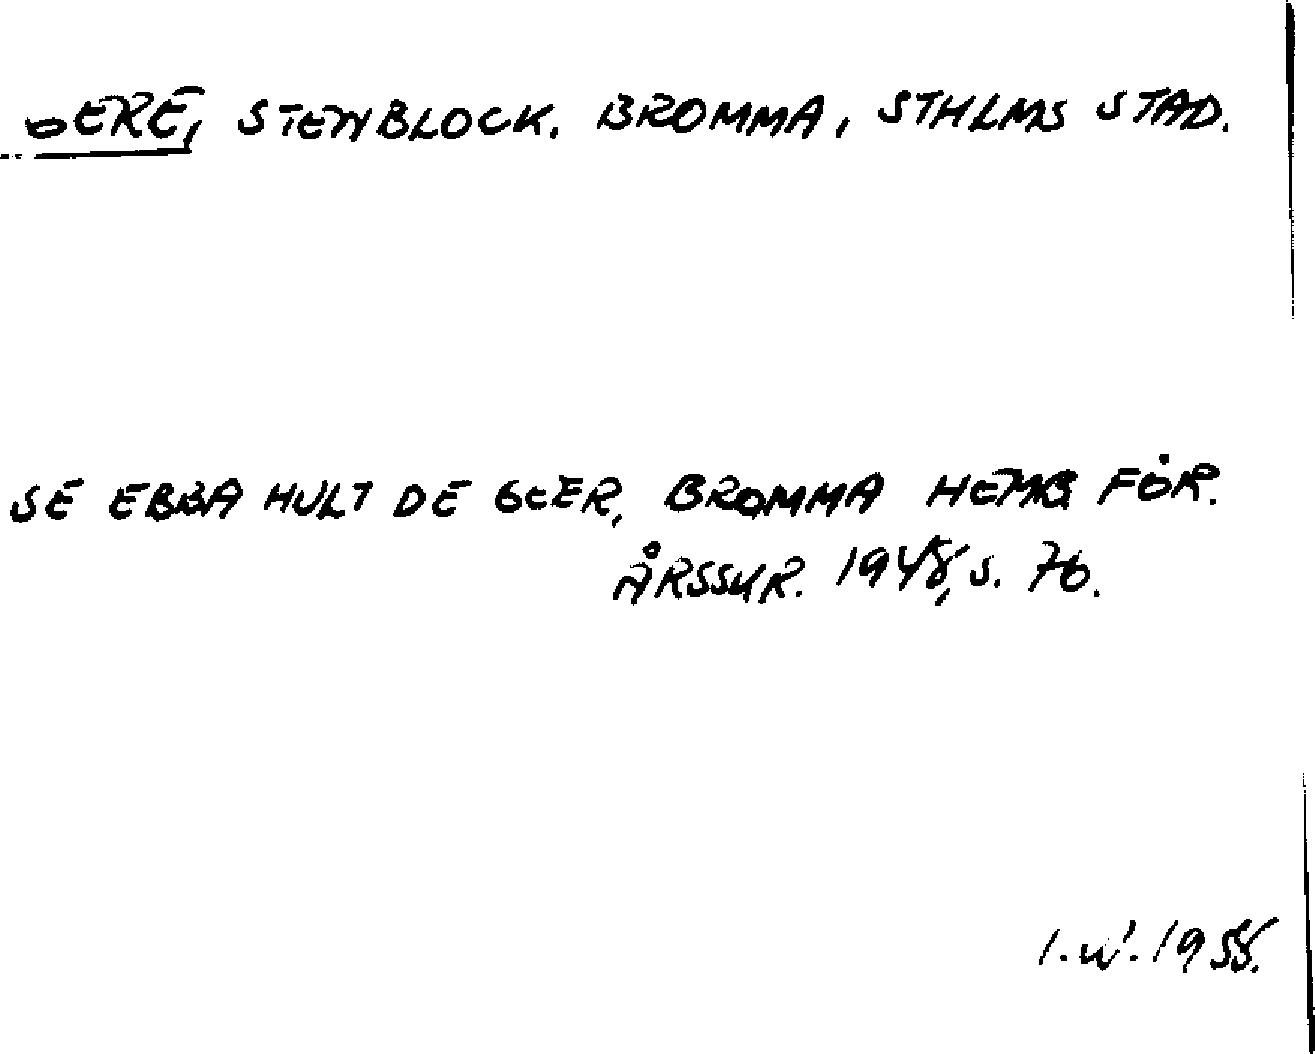 STENBLOCK. BROMMA, STHLMS STAD.
SE EBBA HULT DE GEER, BROMMA HEMB FÖR.
ÅRSSKR. 1948, s. 76.
1958.